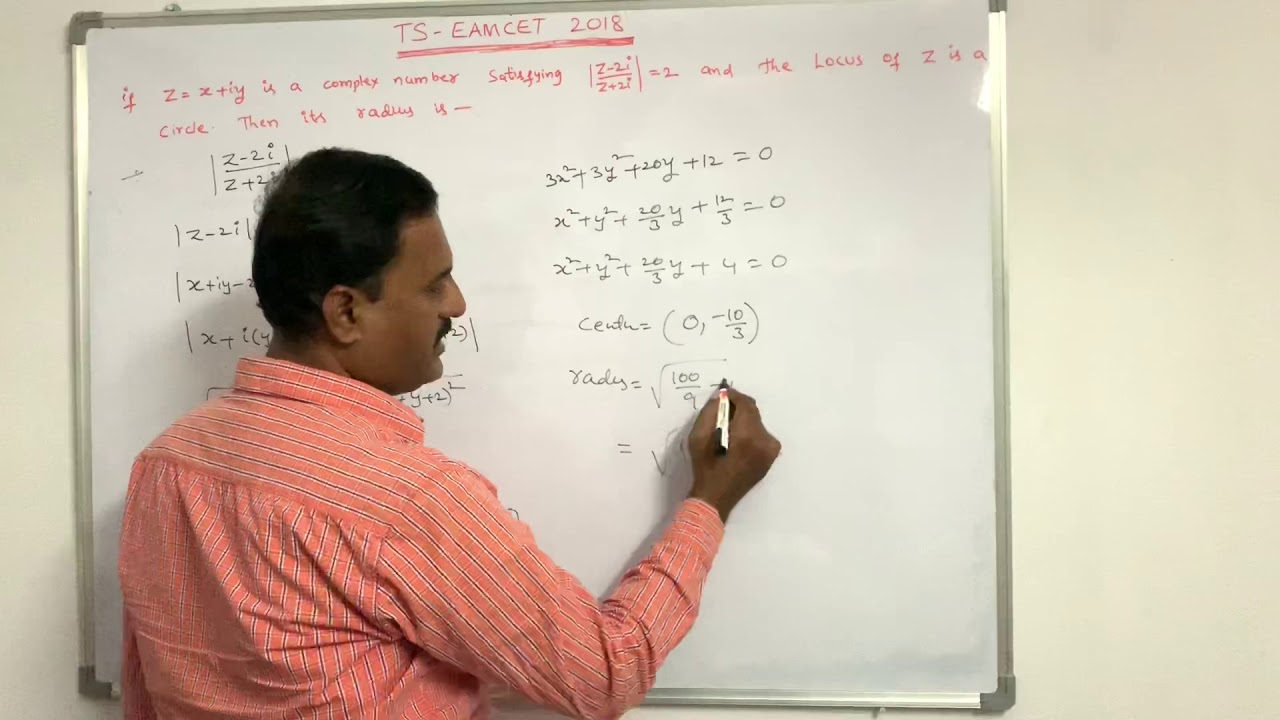 TS-EAMCET 2018
if z = x+iy is a complex number satisfying |z-2i/z+2i| = 2 and the Locus of z is a
circle. Then its radius is —
|z-2i/z+2i
|z-2i|
|x+iy-2
|x+i(y +2)|
+y+2)²
3x²+3y²+20y+12 = 0
x²+y²+20/3y+12/3 = 0
x²+y²+20/3y+4 = 0
= (0, -10/3)
= √100/9 -
= √